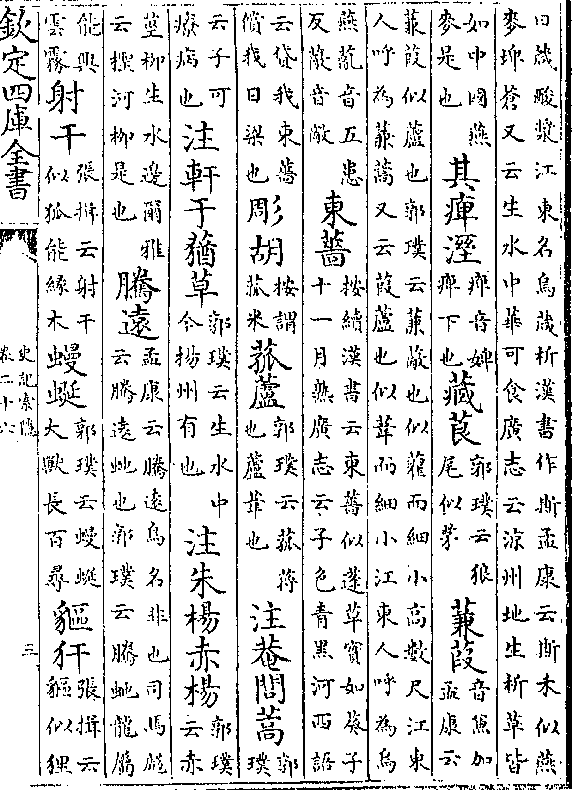 曰葴酸漿江東名烏葴析漢書作斯孟康云斯禾似燕
麥埤蒼又云生水中華可食廣志云涼州地生析草皆
如中國燕麥是也其庳溼庳音婢庳下也藏莨郭璞云狼尾似茅蒹葭音兼加孟康云
蒹葭似蘆也郭璞云蒹薍也似雚而細小高數尺江東
人呼為蒹藡又云葭蘆也似葦而細小江東人呼為烏
燕薍音五患反敵音敵東薔按續漢書云東薔似蓬草實如葵子十一月熟廣志云子色青黑河西語
云貸我東薔償我白粱也彫胡按謂菰米菰蘆郭璞云菰蔣也蘆葦也注菴閭蒿郭璞
云子可療病也注軒于蕕草郭璞云生水中今揚州有也注朱楊赤楊郭璞云赤
莖柳生水邊爾雅云檉河柳是也騰遠孟康云騰遠鳥名非也司馬彪云騰遠虵也郭璞云騰虵龍屬
能興雲霧射干張揖云射干似狐能緣木蟃蜒郭璞云蟃蜒大獸長百尋貙犴張揖云貙似狸
欽定四庫全書
史記索隱
卷二十六
三